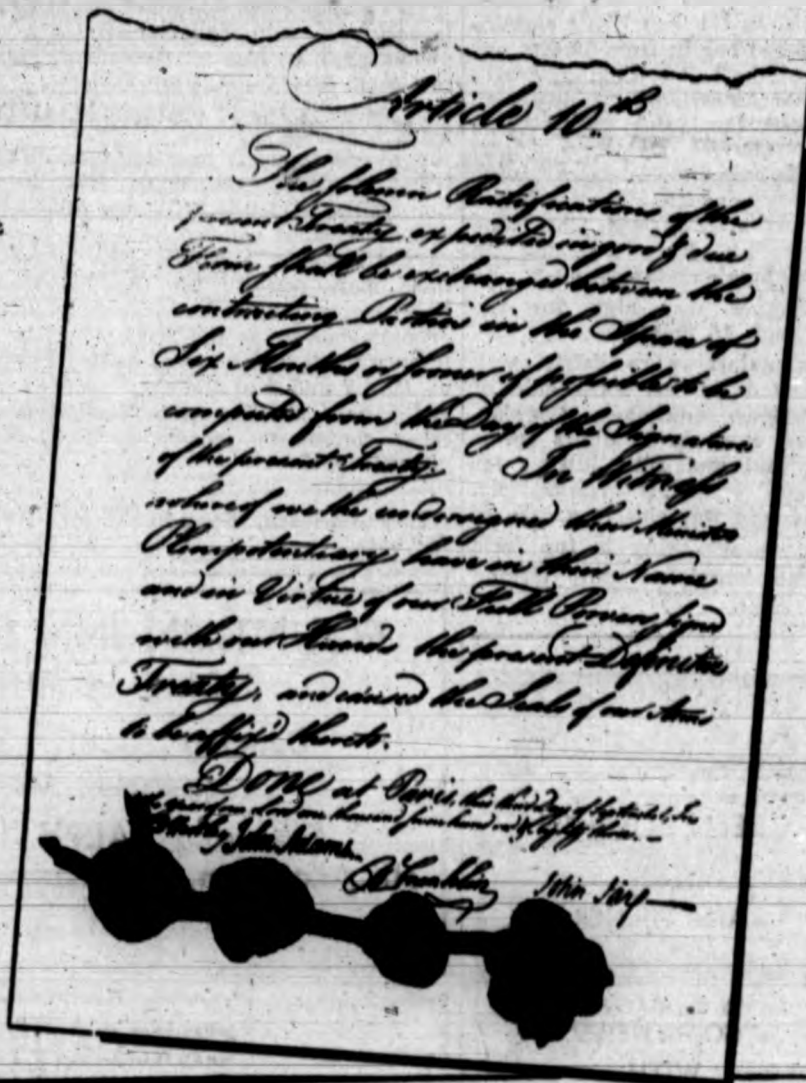 Article 10.th
The solemn Ratifications of the
present Treaty expedited in good & due
Form shall be exchanged between the
contracting Parties in the Space of
Six Months or sooner if possible to be
computed from the Day of the Signature
of the present Treaty. In Witness
whereof we the undersigned their Ministers
Plenipotentiary have in their Name
and in Virtue of our Full Powers signed
with our Hands the present Definitive
Treaty, and caused the Seals of our Arms
to be affix'd thereto.
Done at Paris, this third day of September, In the
year of our Lord one thousand seven hundred & eighty three.
D Hartley John Adams.
B Franklin John Jay